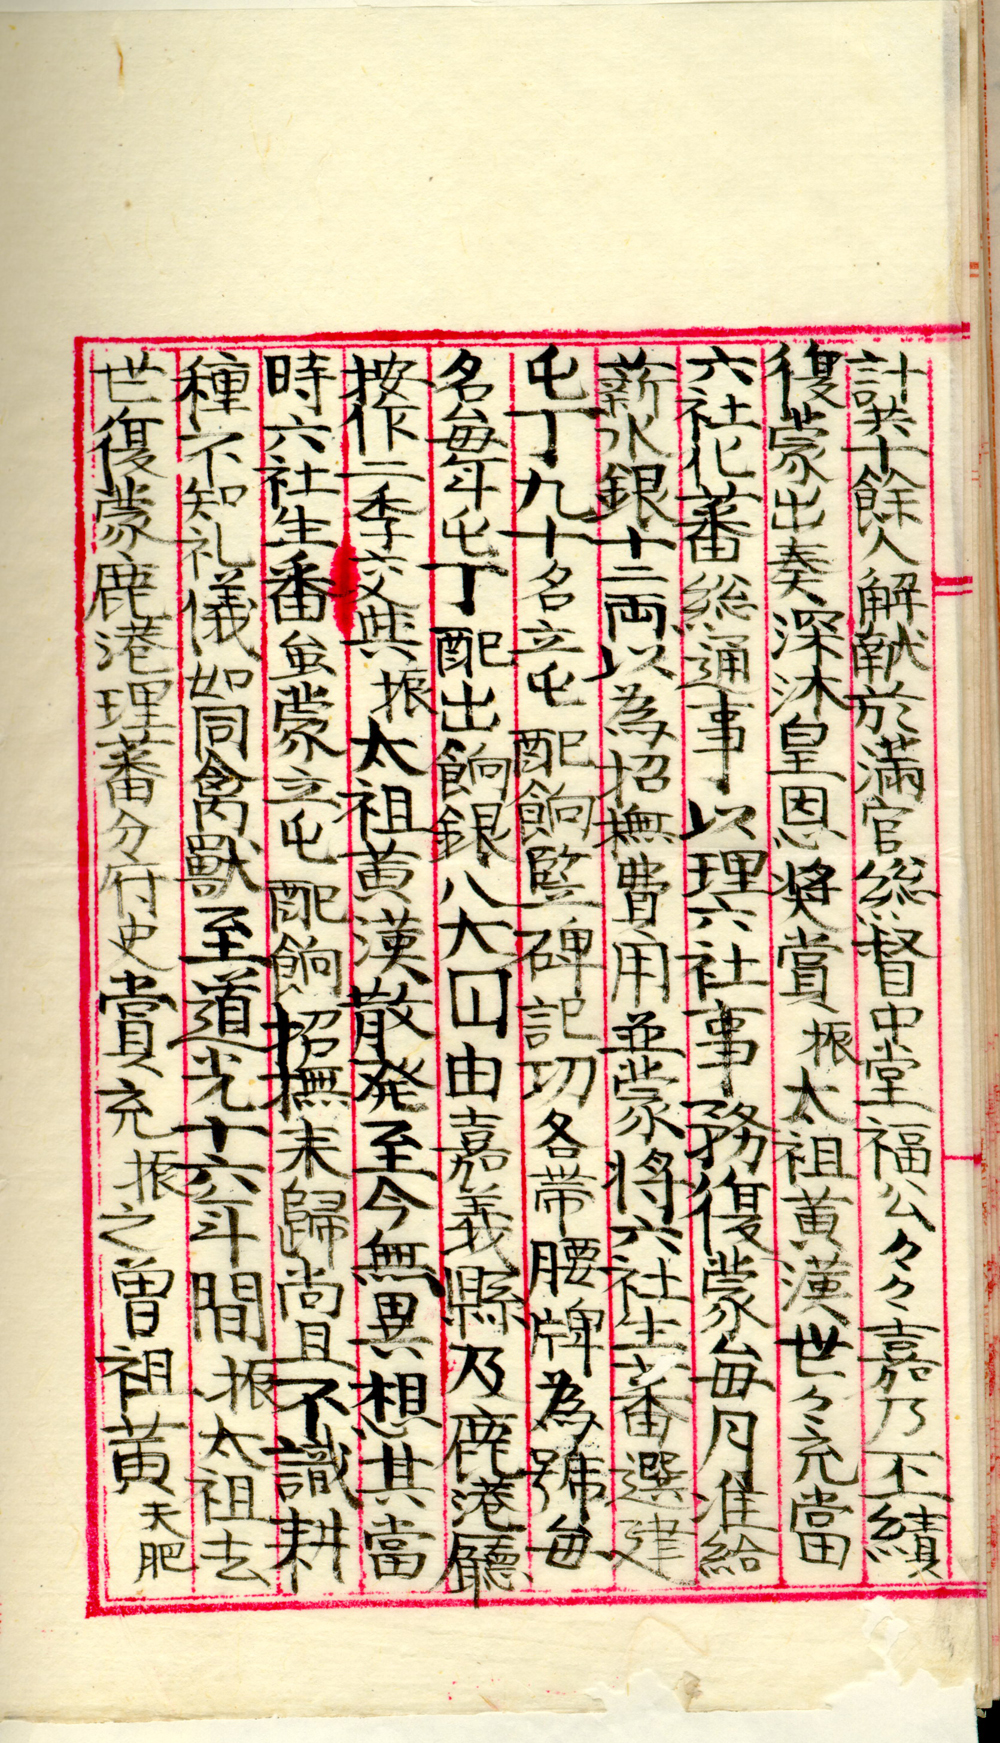 計共十餘人解献於滿官總督中堂福公々々嘉乃丕績
復蒙出奏深沐皇恩奬賞振太祖黃漢世々充當
六社化蕃総通事以理六社事務復蒙每月准給
薪水銀十二両以為招撫費用並蒙將六社生蕃選建
屯丁九十名立屯配餉竪碑記功各帶腰牌為號每
名每年屯丁配出餉銀八大囗由嘉義縣乃鹿港廳
按作二季交與振太祖黃漢散発至今無異想其當
時六社生番虽蒙立屯配餉招撫未歸尚且不識耕
種不知礼儀如同禽獸至道光十六年間振太祖去
世復蒙鹿港理蕃分府史賞充振之曾祖黃天肥